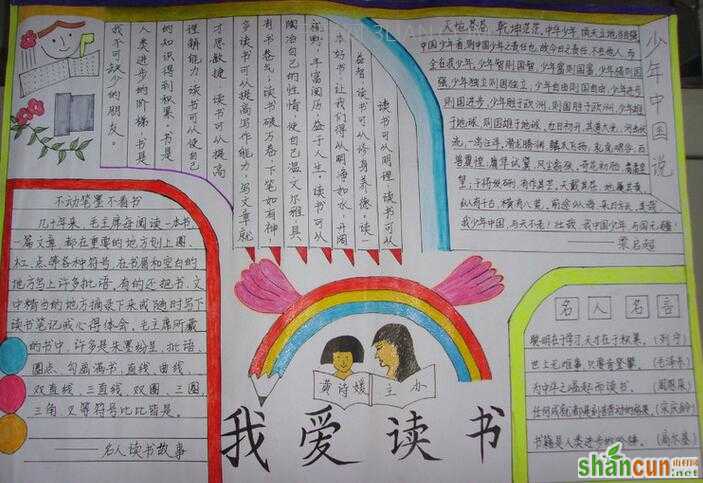 少年中国说
天地苍苍，乾坤茫茫，中华少年，顶天立地当自强
中国少年者，则中国少年之责任也。故今日之责任，不在他人，而
全在我少年。少年智则国智，少年富则国富，少年强则国
强，少年独立则国独立，少年自由则国自由，少年进步
则国进步，少年胜于欧洲，则国胜于欧洲，少年雄
于地球，则国雄于地球。红日初升，其道大光，河出伏
流，一泻汪洋。潜龙腾渊，鳞爪飞扬，乳虎啸谷，百
纵有千古，横有八荒，前途似海，来日方长，美哉
我少年中国，与天不老！壮哉，我中国少年，与国无疆！
——梁启超
读书可以明理，读书可以
益智，读书可以修身养德，读一
本好书，让我们得以明净如水，开阔
视野，丰富阅历，益于人生。读书可以
陶冶自己的性情，使自己温文尔雅，具
有书卷气；读书破万卷，下笔如有神，
多读书可以提高写作能力，写文章就
才思敏捷；读书可以提高
理解能力，读书可以使自己
的知识得到积累，书是
人类进步的阶梯，书是
我不可缺少的朋友。
不动笔墨不看书
几十年来，毛主席每阅读一本书
一篇文章，都在重要的地方划上圈、
杠、点等各种符号，在书眉和空白的
地方写上许多批语，有的还把书、文
中精当的地方摘录下来或随时写下
读书笔记或心得体会，毛主席所藏
的书中，许多是朱墨纷呈，批语、
圈点、勾画满书，直线、曲线、
双直线、三直线、双圈、三圈、
三角、叉等符号比比皆是。
——名人读书故事
名人名言
聪明在于学习，天才在于积累。（列宁）
世上无难事，只要肯登攀。（毛泽东）
为中华之崛起而读书。（周恩来）
书籍是人类进步的阶梯。（高尔基）
我爱读书
shancun